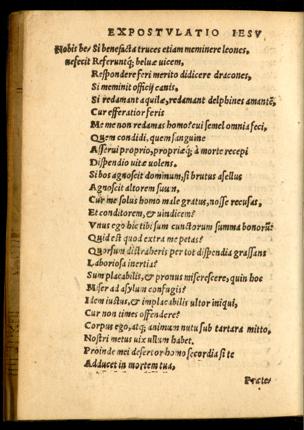 EXPOSTVLATIO IESV
Nobis be/ Si benefacta truces etiam meminere leones,
nefecit Referuntq; beluæ uicem,
Respondere feri merito didicere dracones,
Si meminit officij canis,
Si redamant aquilæ, redamant delphines amantē,
Cur efferatior feris
Me me non redamas homo? cui semel omnia feci,
Quem condidi, quem sanguine
Asserui proprio, propriæq; à morte recepi
Dispendio uitæ uolens.
Si bos agnoscit dominum, si brutus asellus
Agnoscit altorem suum,
Cur me solus homo male gratus, nosse recusas,
Et conditorem, & uindicem?
Vnus ego hic tibi sum cunctorum summa bonorū
Quid est quod extra me petas?
Quorsum distraheris per tot dispendia grassans
Laboriosa inertia?
Sum placabilis, & pronus miserescere, quin hoc
Miser ad asylum confugis?
Idem iustus, & implacabilis ultor iniqui,
Cur non times offendere?
Corpus ego, atq; animum nutu sub tartara mitto,
Nostri metus uix ullum habet.
Proinde mei desertor homo secordia si te
Adducet in mortem tua,
Præte/